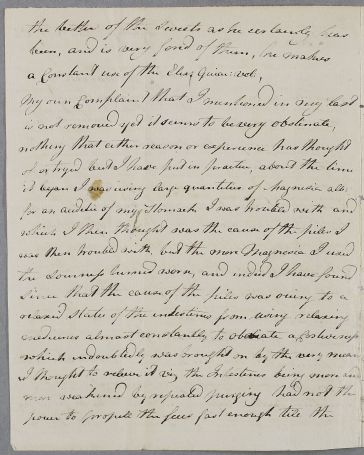 the better of the Sweets as he certainly has
been, and is very fond of them, he makes
a Constant use of the Elix: Guiac: vol:
My own Complaint that I mentioned in my last
is not removed yet it seems to be very obstinate,
nothing that either reason or experience has thought
of or tryed but I have put in practice, about the time
it began I was using large quantities of Magnesia alb:
for an acidity of my Stomach I was troubled with and
which I then thought was the cause of the piles I
was then troubled with but the more Magnesia I used
the Sourness turned worse, and indeed I have found
Since that the cause of the piles was owing to a
relaxed State of the intestines from using relaxing
medicines almost constantly to obviate a Costiveness
which undoubtedly was brought on by the very means
I thought to relieve it viz the Intestines being more and
more weakened by repeated purging had not the
power to propell the feces fast enough till the